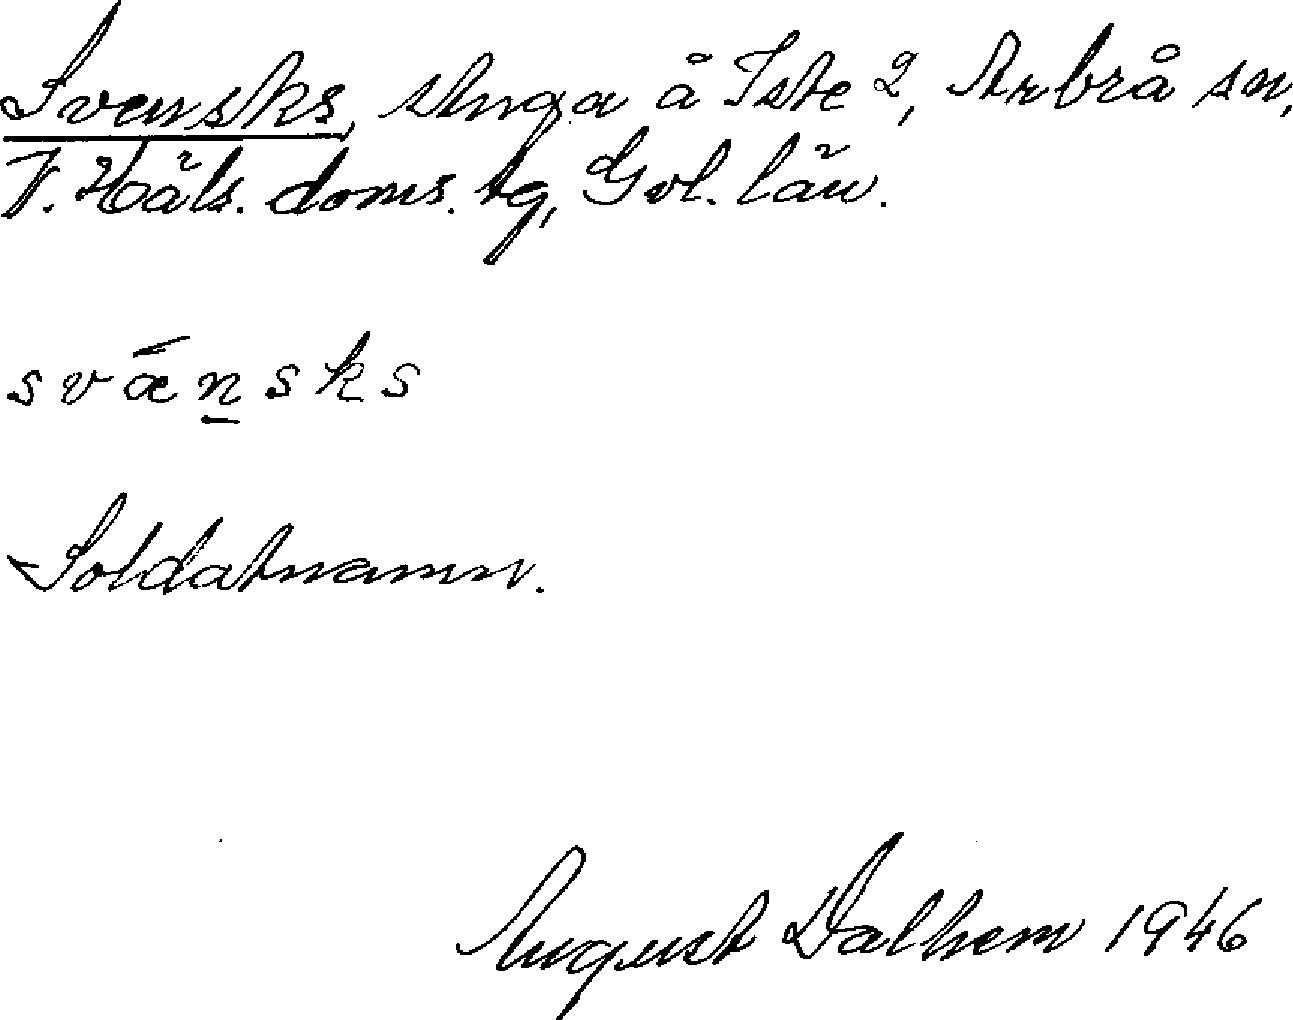 Svensks, stuga å Iste 2, Arbrå sn,
V. Häls. doms. tg, Gvl. län.
svǽn̲sks
Soldatnamn.
August Dalhem 1946